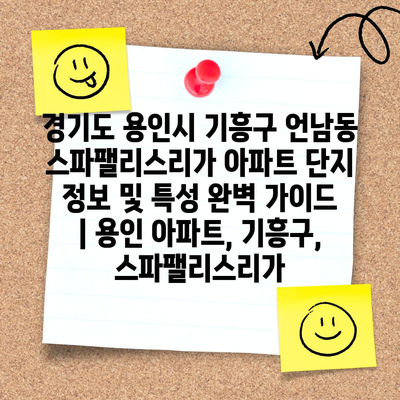 경기도 용인시 기흥구 언남동
스파팰리스리가 아파트 단지
정보 및 특성 완벽 가이드
| 용인 아파트, 기흥구,
스파팰리스리가